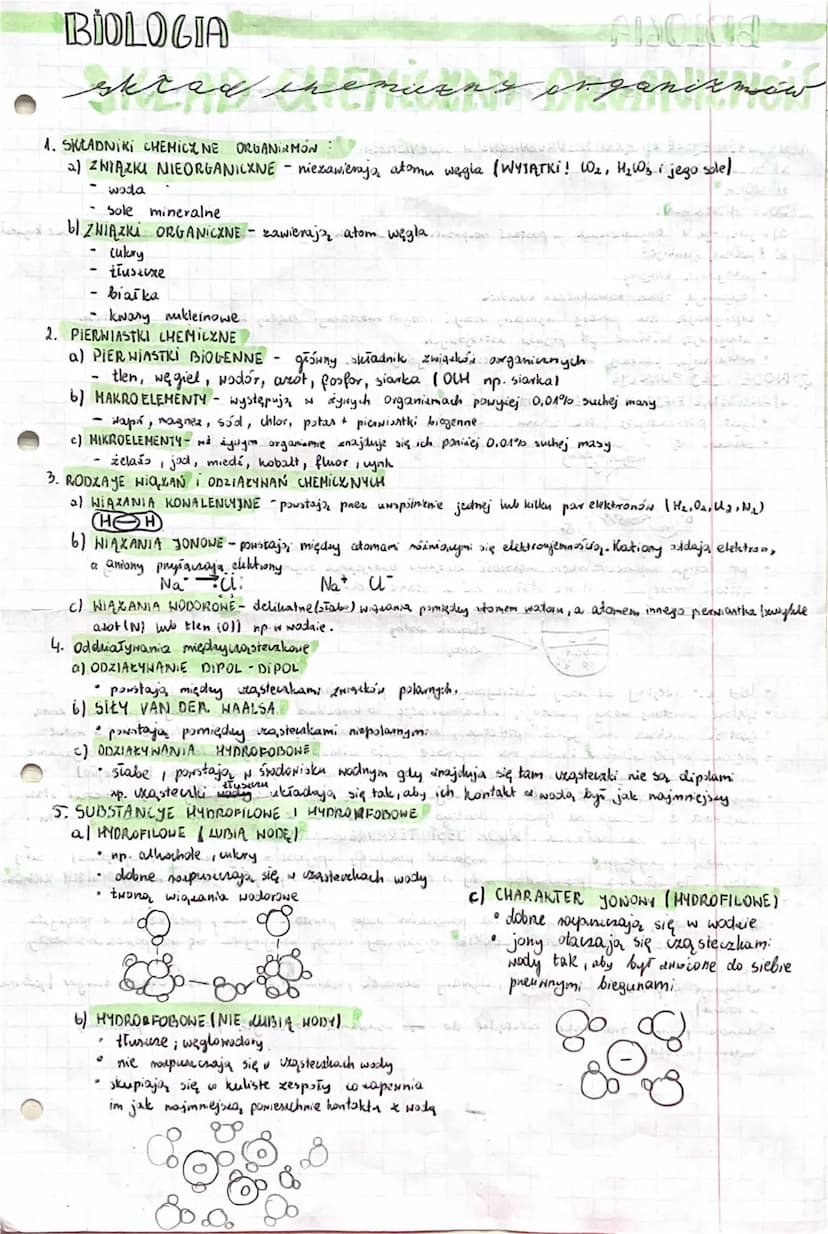 BIOLOGIA
skład chemiczny organizmów
1. SKŁADNIKI CHEMICZNE ORGANIZMÓW :
a) ZWIĄZKI NIEORGANICZNE - niezawierają atomu węgla (WYJĄTKI! CO₂, H₂CO₃ i jego sole)
- woda
- sole mineralne
b) ZWIĄZKI ORGANICZNE - zawierają atom węgla
- cukry
- tłuszcze
- białka
- kwasy nukleinowe
2. PIERWIASTKI CHEMICZNE
a) PIERWIASTKI BIOGENNE - główny składnik związków oorganicznych
- tlen, węgiel, wodór, azot, fosfor, siarka ( np. siarka)
b) MAKROELEMENTY - występują w żywych organizmach powyżej 0,01% suchej masy
- wapń, magnez, sód, chlor, potas + pierwiastki biogenne
c) MIKROELEMENTY - w żywym organizmie znajduje się ich poniżej 0.01% suchej masy
- żelazo, jod, miedź, kobalt, fluor, cynk
3. RODZAJE WIĄZAŃ i ODZIAŁYWAŃ CHEMICZNYCH
a) WIĄZANIA KOWALENCYJNE - powstają przez uwspólnienie jednej lub kilku par elektronów (H₂, O₂, Cl₂, N₂)
H H
b) WIĄZANIA JONOWE - powstają między atomami różniącymi się elektroujemnością. Kationy oddają elektron,
a aniony przyłączają elektrony
Na → Cl: Na⁺ Cl⁻
c) WIĄZANIA WODOROWE - delikatne (słabe) wiązania pomiędzy atomem wodoru, a atomem innego pierwiastka (zwykle
azot (N) lub tlen (O)) np. w wodzie.
4. Oddziaływania międzycząsteczkowe
a) ODZIAŁYWANIE DIPOL - DIPOL
• powstają między cząsteczkami związków polarnych.
b) SIŁY VAN DER WAALSA
• powstają pomiędzy cząsteczkami niepolarnymi
c) ODZIAŁYWANIA HYDROFOBOWE
• słabe, powstają w środowisku wodnym gdy znajdują się tam cząsteczki nie są dipolami
np. cząsteczki tłuszczu układają się tak, aby ich kontakt z wodą był jak najmniejszy
5. SUBSTANCJE HYDROFILOWE I HYDROFOBOWE
a) HYDROFILOWE (LUBIĄ WODĘ)
• np. alkohole, cukry
• dobrze rozpuszczają się w cząsteczkach wody
• tworzą wiązania wodorowe
b) HYDROFOBOWE (NIE LUBIĄ WODY)
• tłuszcze, węglowodory
• nie rozpuszczają się w cząsteczkach wody
• skupiają się w kuliste zespoły co zapewnia
im jak najmniejszą powierzchnie kontaktu z wodą
c) CHARAKTER JONOWY (HYDROFILOWE)
• dobrze rozpuszczają się w wodzie
• jony otaczają się cząsteczkami
wody tak, aby być zwrócone do siebie
przeciwnymi biegunami